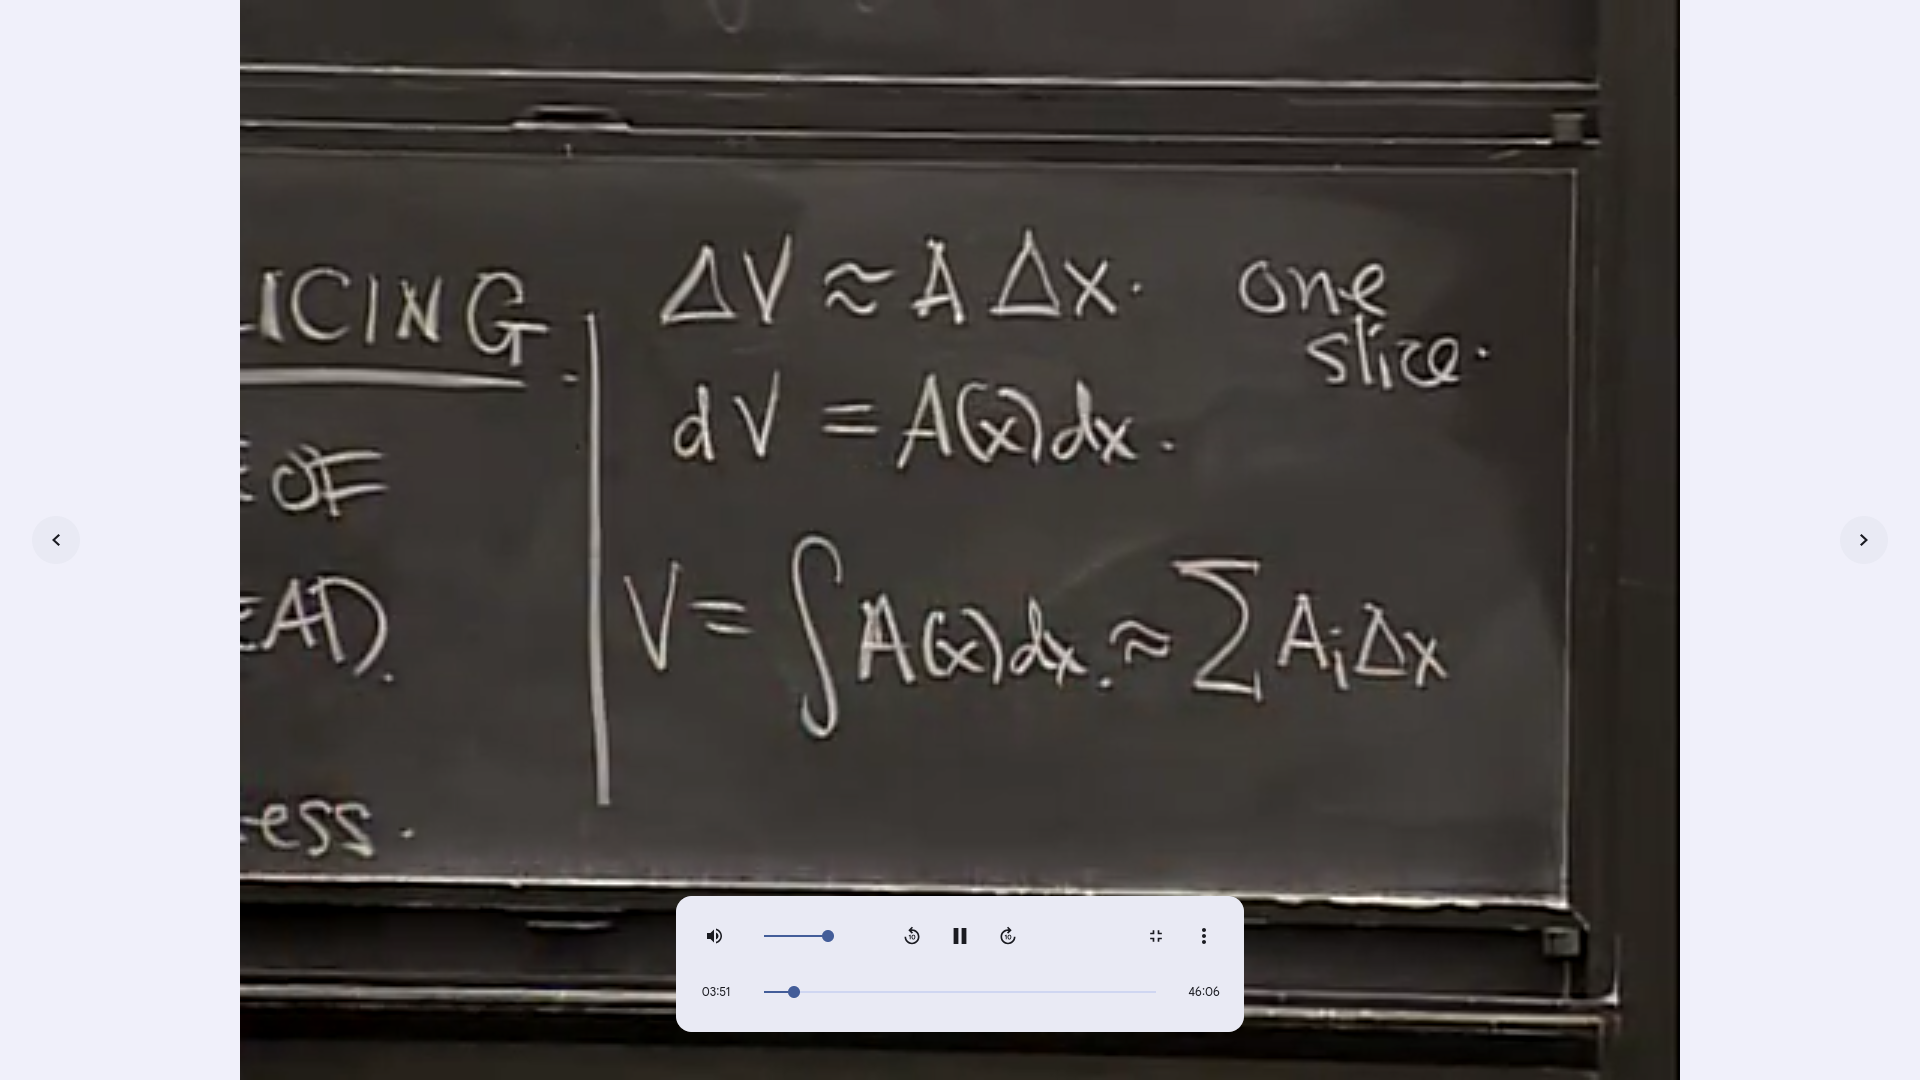 LICING
OF
EAD.
ess.
ΔV ≈ A Δx. one
slice.
dV = A(x)dx.
V = ∫A(x)dx. ≈ ∑ A_i Δx
10
10
03:51
46:06